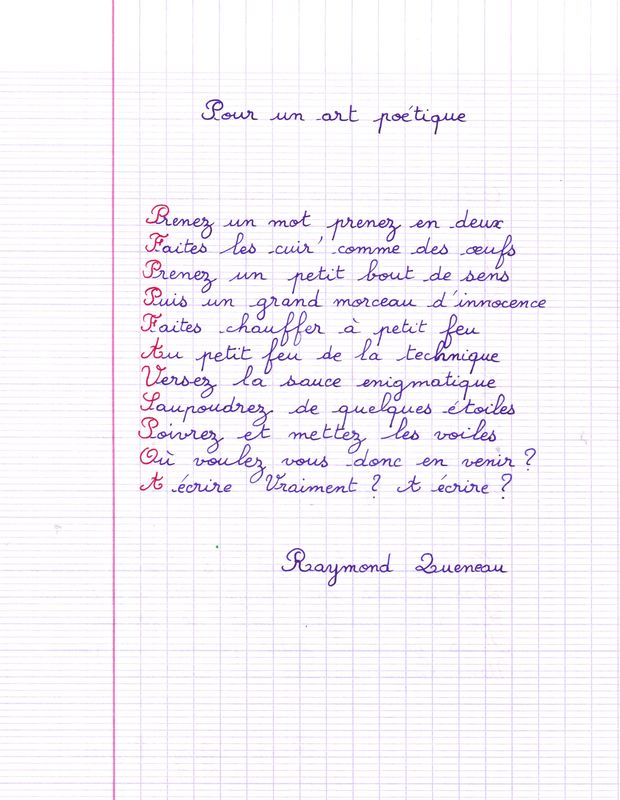 Pour un art poétique
Prenez un mot prenez en deux
Faites les cuir' comme des œufs
Prenez un petit bout de sens
Puis un grand morceau d'innocence
Faites chauffer à petit feu
Au petit feu de la technique
Versez la sauce enigmatique
Saupoudrez de quelques étoiles
Poivrez et mettez les voiles
Où voulez vous donc en venir ?
A écrire Vraiment ? A écrire ?
Raymond Queneau